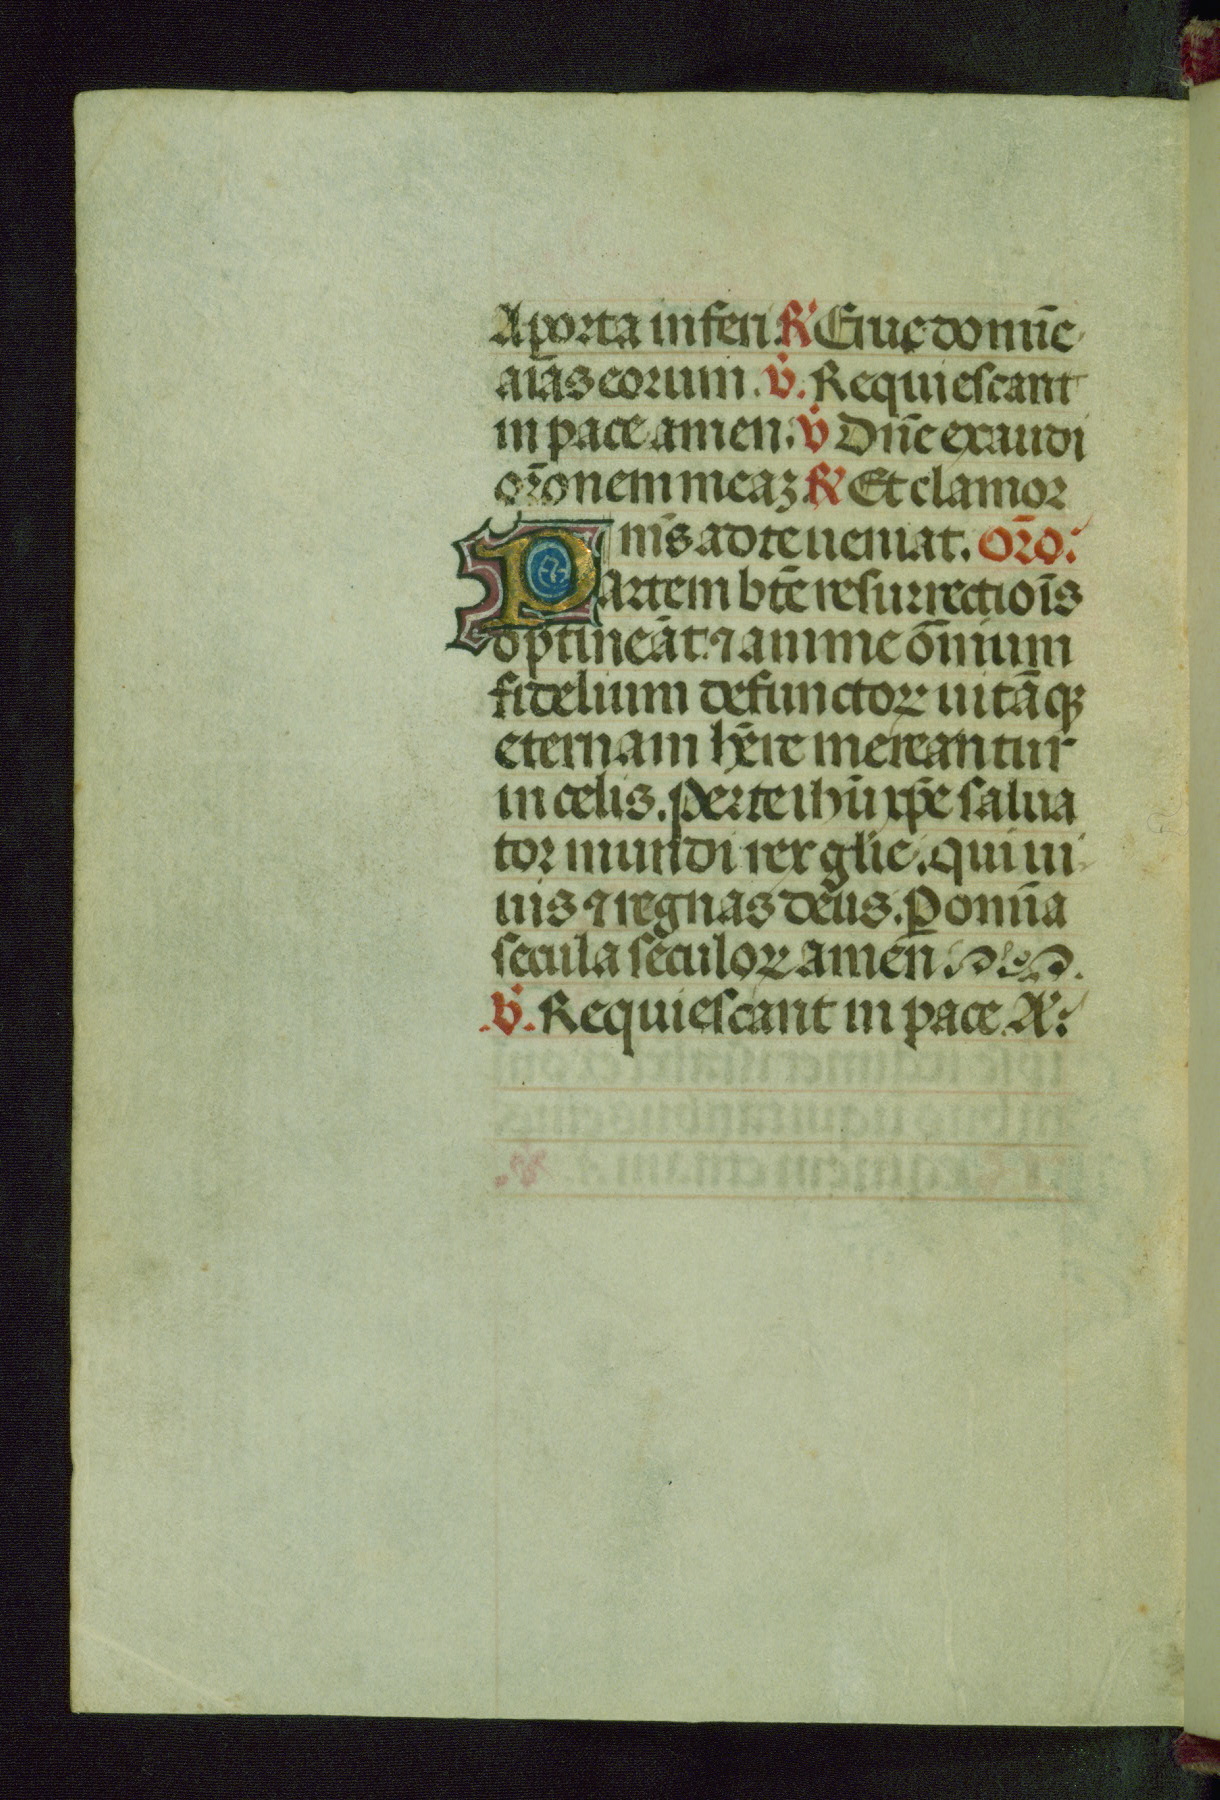 A porta inferi. ℟ Erue domīe
aīas eorum. ℣. Requiescant
in pace amen. ℣ Dn̄e exaudi
or̄onem meaꝫ ℟ Et clamor
m̄s ad te ueniat. or̄o.
Partem bt̄e resurrectiōis
optineāt. ⁊ anime ōmium
fidelium defunctoꝝ uitāqꝫ
eternam hēre mereantur
in celis. Per te ihū xp̄e salua
tor mundi rex glīe. qui ui
uis ⁊ regnas deus. P omīa
secula seculoꝝ amen
℣. Requiescant in pace. A.